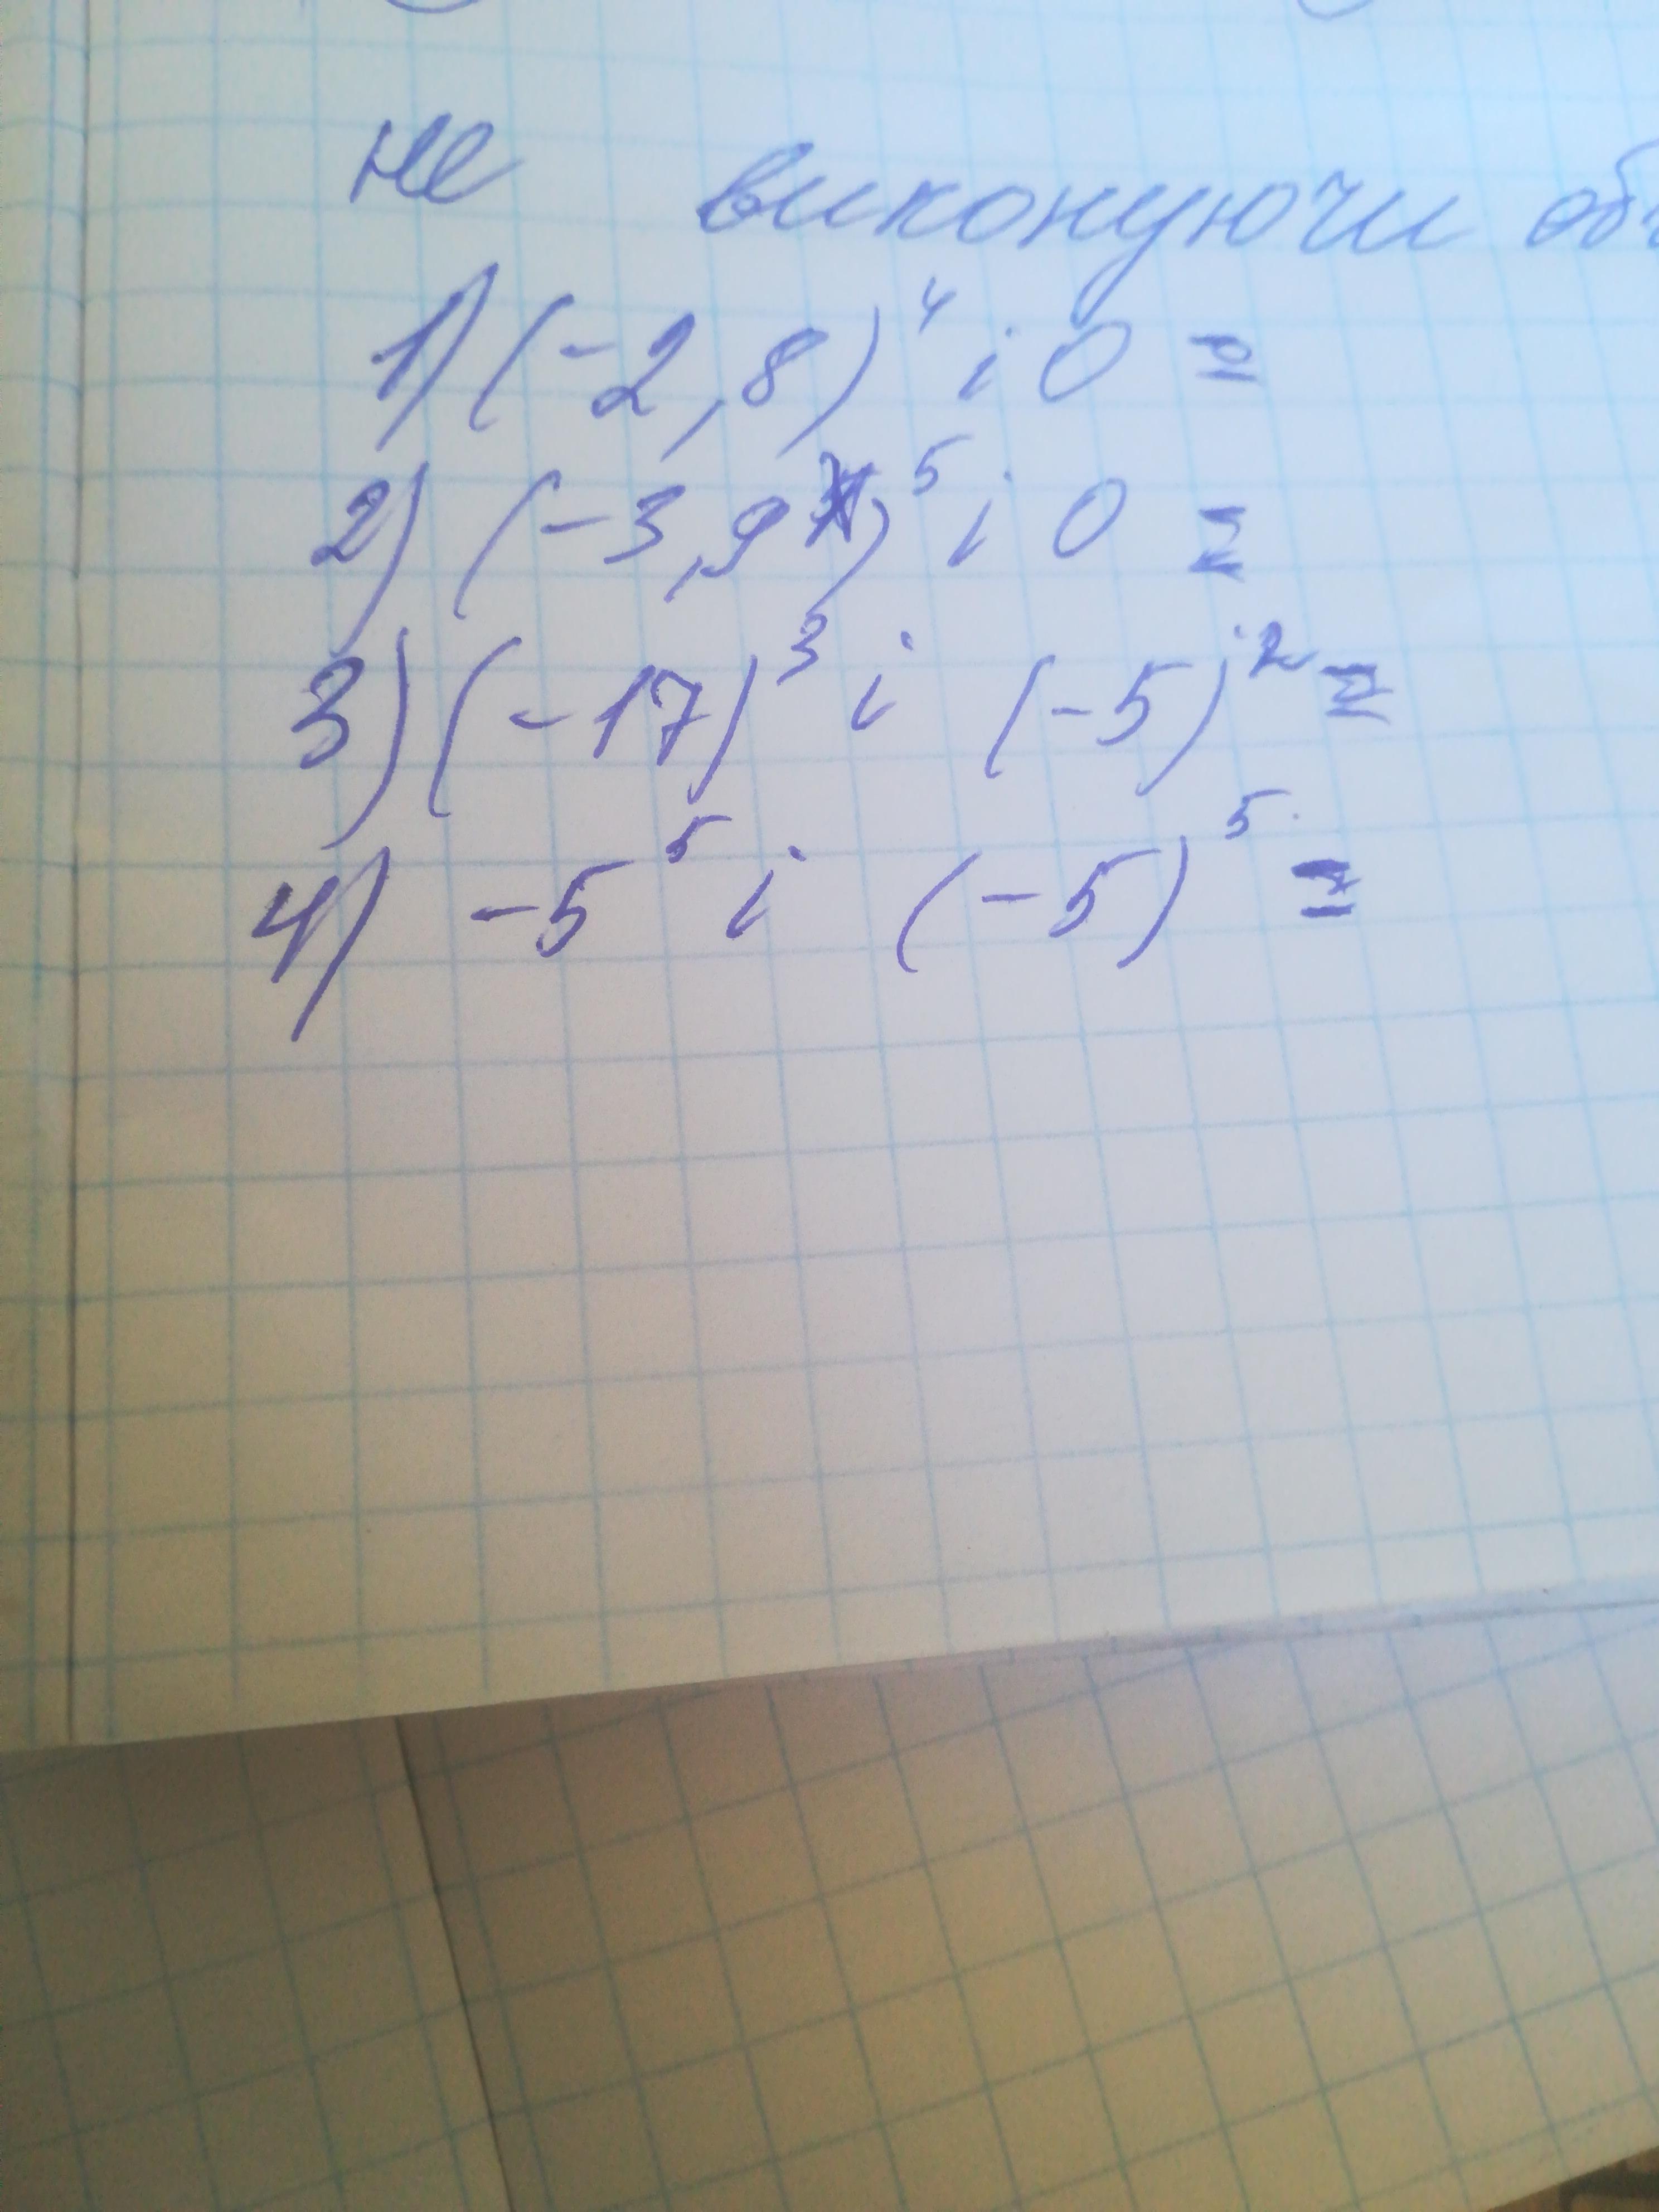 не виконуючи об
1) (-2,8)⁴ і 0 =
2) (-3,9)⁵ і 0 =
3) (-17)³ і (-5)² =
4) -5⁵ і (-5)⁵ =